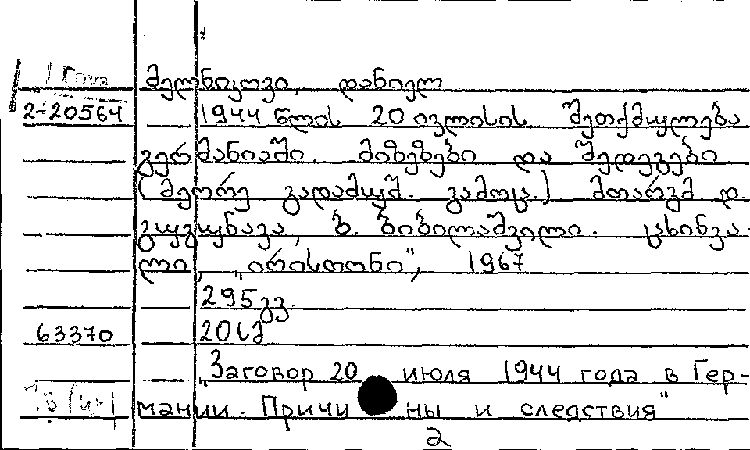 მელნიკოვი, დანიელ
2-20564 1944 წლის 20 ივლისის შეთქმულება
გერმანიაში. მიზეზები და შედეგები
(მეორე გადამუშ. გამოც.) მთარგმ დ.
გუგუნავა, ბ. ბიბილაშვილი. ცხინვა-
ლი, „ირისთონი", 1967
295გვ.
63370 20სმ
„Заговор 20 июля 1944 года в Гер-
мании. Причины и следствия"
2